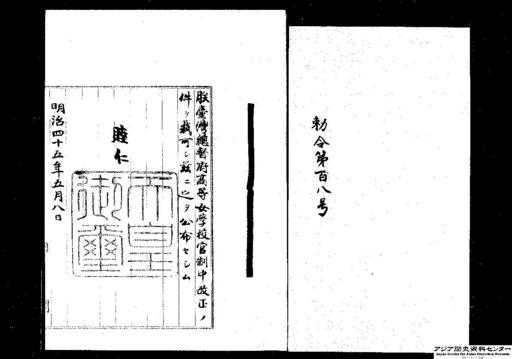 勅令第百八号
朕臺灣總督府高等女学校官制中改正ノ
件ヲ裁可シ茲ニ之ヲ公布セシム
睦仁
天皇
御璽
明治四十五年五月八日
アジア歴史資料センター
Japan Center for Asian Historical Records